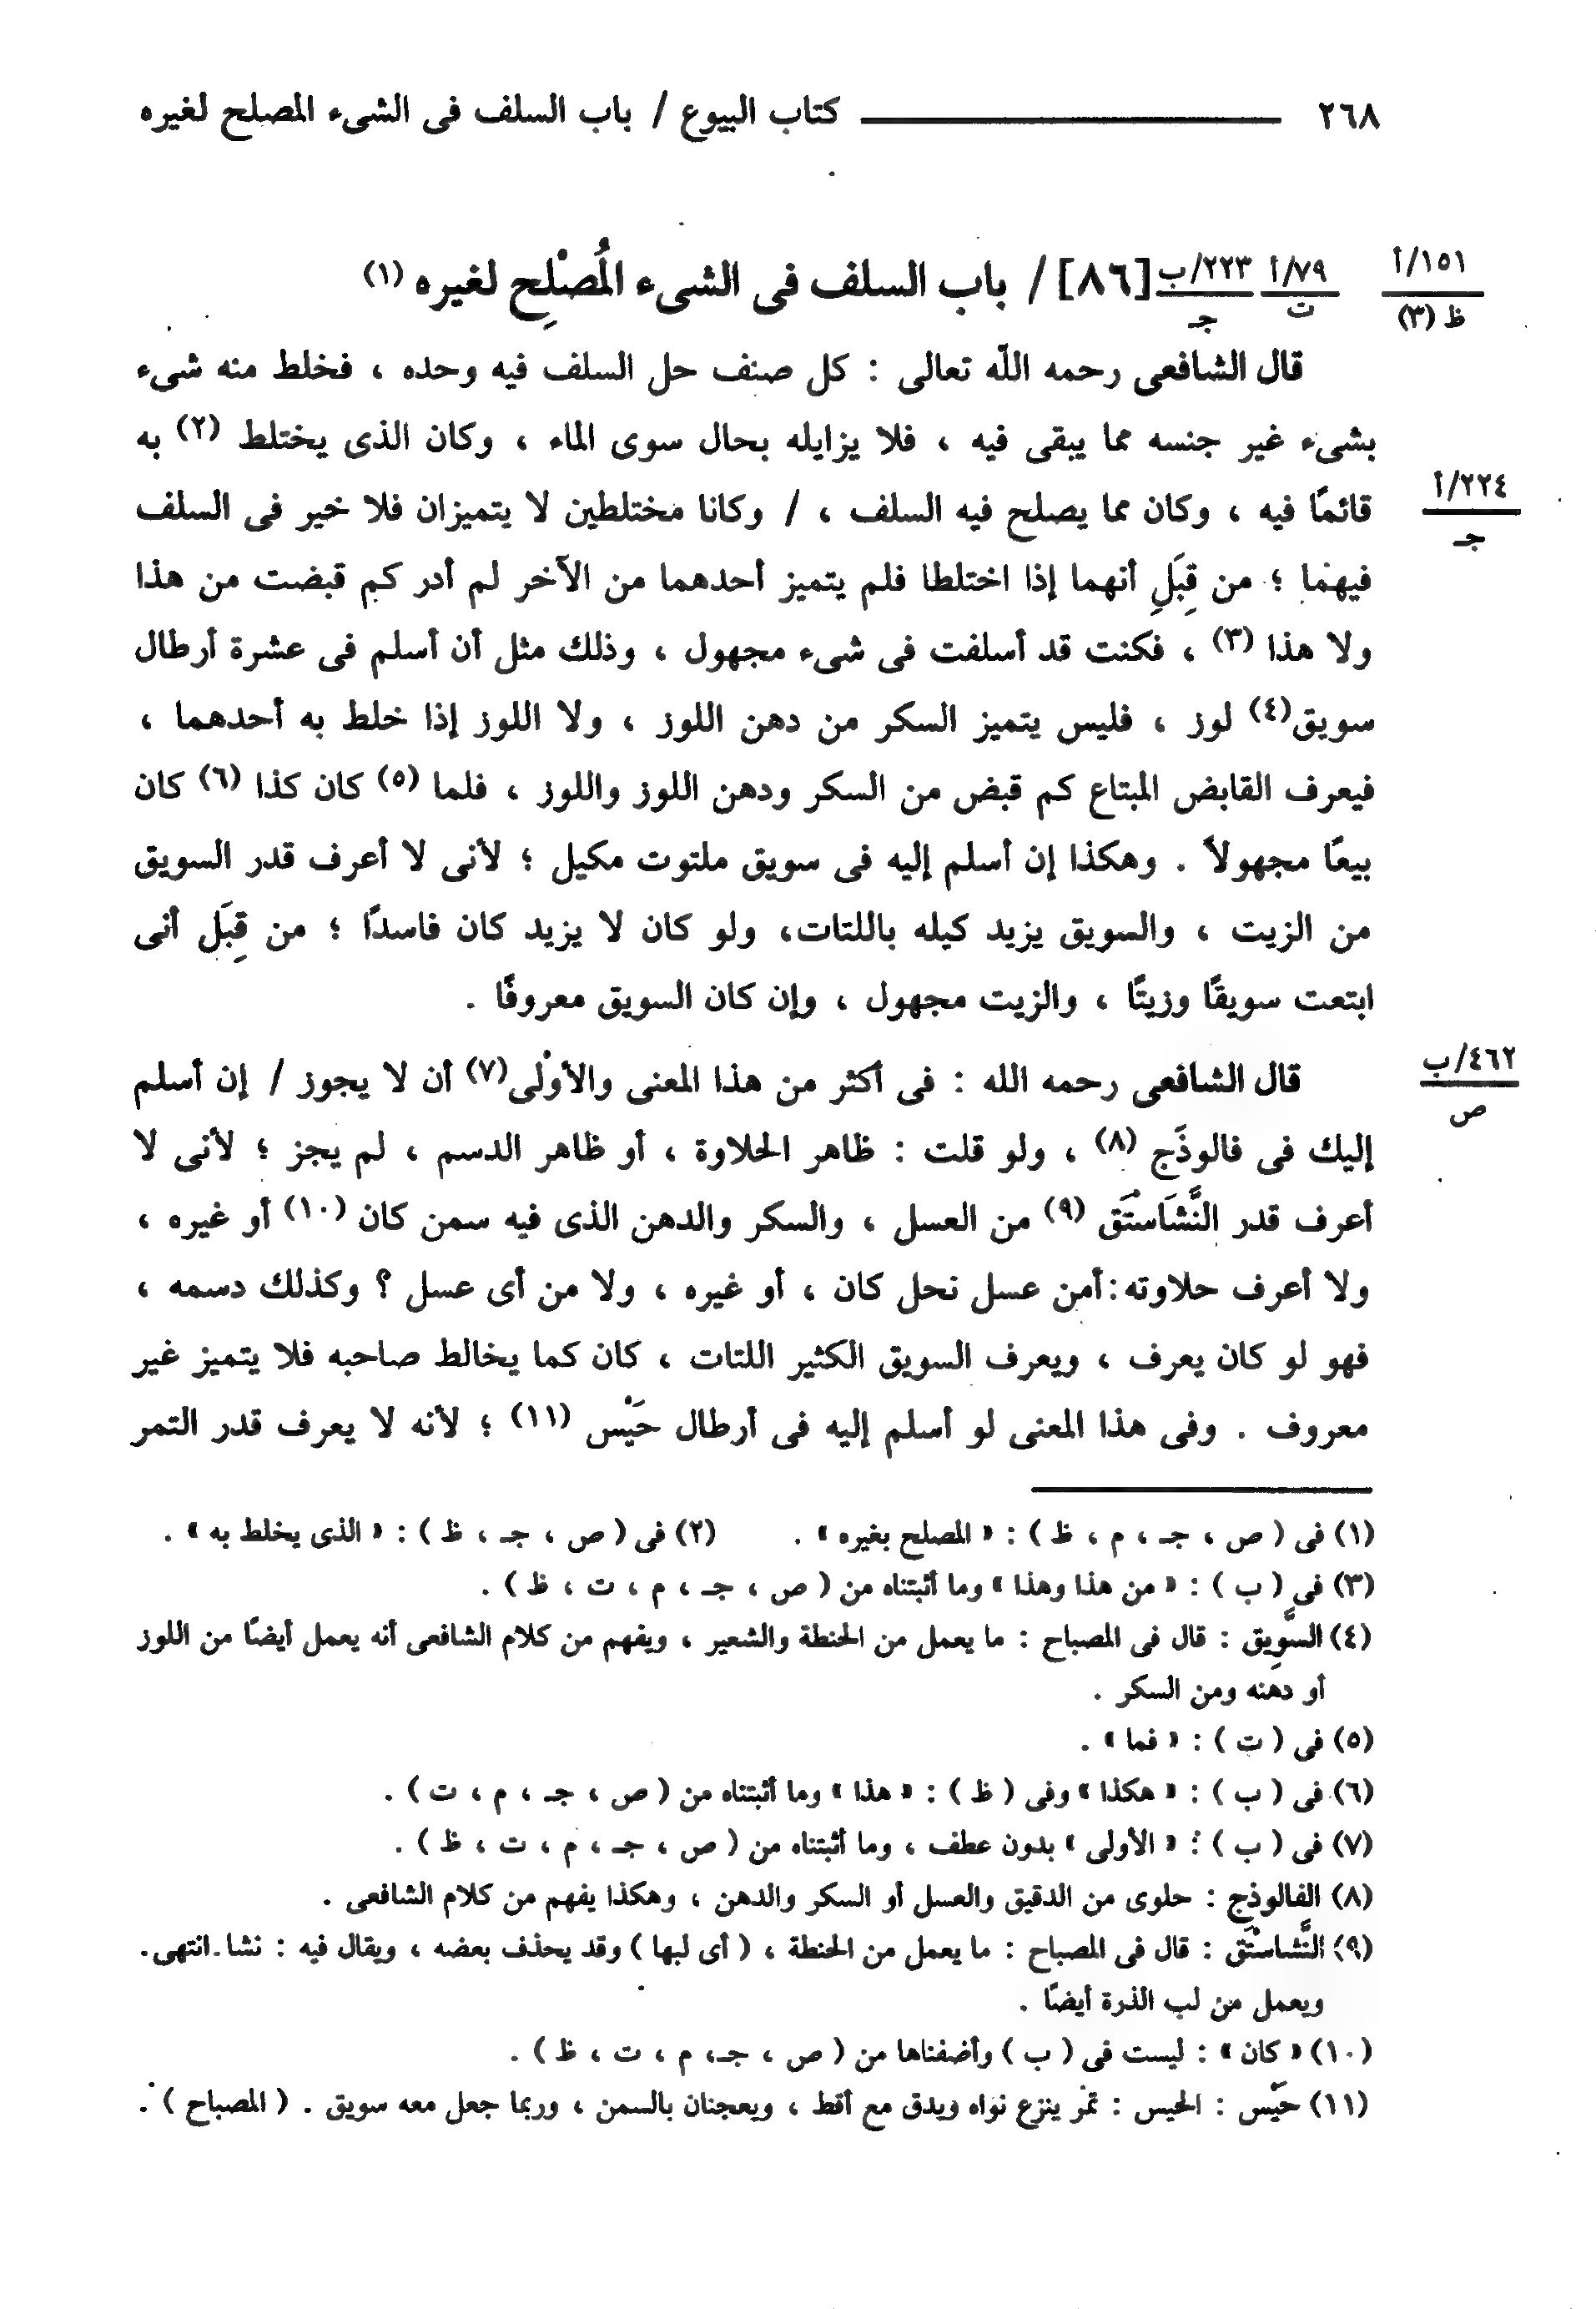 ٢٦٨ كتاب البيوع / باب السلف فى الشىء المصلح لغيره
١٥١/أ
ظ (٣)
٧٩/أ
ت
٢٢٣/ب
جـ
[٨٦] / باب السلف فى الشىء المُصْلِح لغيره (١)
قال الشافعى رحمه اللّه تعالى : كل صنف حل السلف فيه وحده ، فخلط منه شىء
بشىء غير جنسه مما يبقى فيه ، فلا يزايله بحال سوى الماء ، وكان الذى يختلط (٢) به
٢٢٤/أ
جـ
قائمًا فيه ، وكان مما يصلح فيه السلف ، / وكانا مختلطين لا يتميزان فلا خير فى السلف
فيهما ؛ من قِبَلِ أنهما إذا اختلطا فلم يتميز أحدهما من الآخر لم أدر كم قبضت من هذا
ولا هذا (٣) ، فكنت قد أسلفت فى شىء مجهول ، وذلك مثل أن أسلم فى عشرة أرطال
سويق(٤) لوز ، فليس يتميز السكر من دهن اللوز ، ولا اللوز إذا خلط به أحدهما ،
فيعرف القابض المبتاع كم قبض من السكر ودهن اللوز واللوز ، فلما (٥) كان كذا (٦) كان
بيعًا مجهولاً . وهكذا إن أسلم إليه فى سويق ملتوت مكيل ؛ لأنى لا أعرف قدر السويق
من الزيت ، والسويق يزيد كيله باللتات، ولو كان لا يزيد كان فاسدًا ؛ من قِبَلِ أنى
ابتعت سويقًا وزيتًا ، والزيت مجهول ، وإن كان السويق معروفًا .
٤٦٢/ب
ص
قال الشافعى رحمه الله : فى أكثر من هذا المعنى والأوْلى(٧) أن لا يجوز / إن أسلم
إليك فى فالوذَج (٨) ، ولو قلت : ظاهر الحلاوة ، أو ظاهر الدسم ، لم يجز ؛ لأنى لا
أعرف قدر النَّشَاسْتَق (٩) من العسل ، والسكر والدهن الذى فيه سمن كان (١٠) أو غيره ،
ولا أعرف حلاوته:أمن عسل نحل كان ، أو غيره ، ولا من أى عسل ؟ وكذلك دسمه ،
فهو لو كان يعرف ، ويعرف السويق الكثير اللتات ، كان كما يخالط صاحبه فلا يتميز غير
معروف . وفى هذا المعنى لو أسلم إليه فى أرطال حَيْس (١١) ؛ لأنه لا يعرف قدر التمر
(١) فى ( ص ، جـ ، م ، ظ ) : « المصلح بغيره » . (٢) فى ( ص ، جـ ، ظ ) : « الذى يخلط به » .
(٣) فى ( ب ) : « من هذا وهذا » وما أثبتناه من ( ص ، جـ ، م ، ت ، ظ ) .
(٤) السَّوِيق : قال فى المصباح : ما يعمل من الحنطة والشعير ، ويفهم من كلام الشافعى أنه يعمل أيضًا من اللوز
أو دهنه ومن السكر .
(٥) فى ( ت ) : « فما » .
(٦) فى ( ب ) : « هكذا » وفى ( ظ ) : « هذا » وما أثبتناه من ( ص ، جـ ، م ، ت ) .
(٧) فى ( ب ) : « الأولى » بدون عطف ، وما أثبتناه من ( ص ، جـ ، م ، ت ، ظ ) .
(٨) الفالوذج : حلوى من الدقيق والعسل أو السكر والدهن ، وهكذا يفهم من كلام الشافعى .
(٩) النَّشاسْتَق : قال فى المصباح : ما يعمل من الحنطة ، ( أى لبها ) وقد يحذف بعضه ، ويقال فيه : نشا.انتهى.
ويعمل من لب الذرة أيضًا .
(١٠) « كان » : ليست فى ( ب ) وأضفناها من ( ص ، جـ، م ، ت ، ظ ) .
(١١) حَيْس : الحيس : تمر ينزع نواه ويدق مع أقط ، ويعجنان بالسمن ، وربما جعل معه سويق . ( المصباح ) .